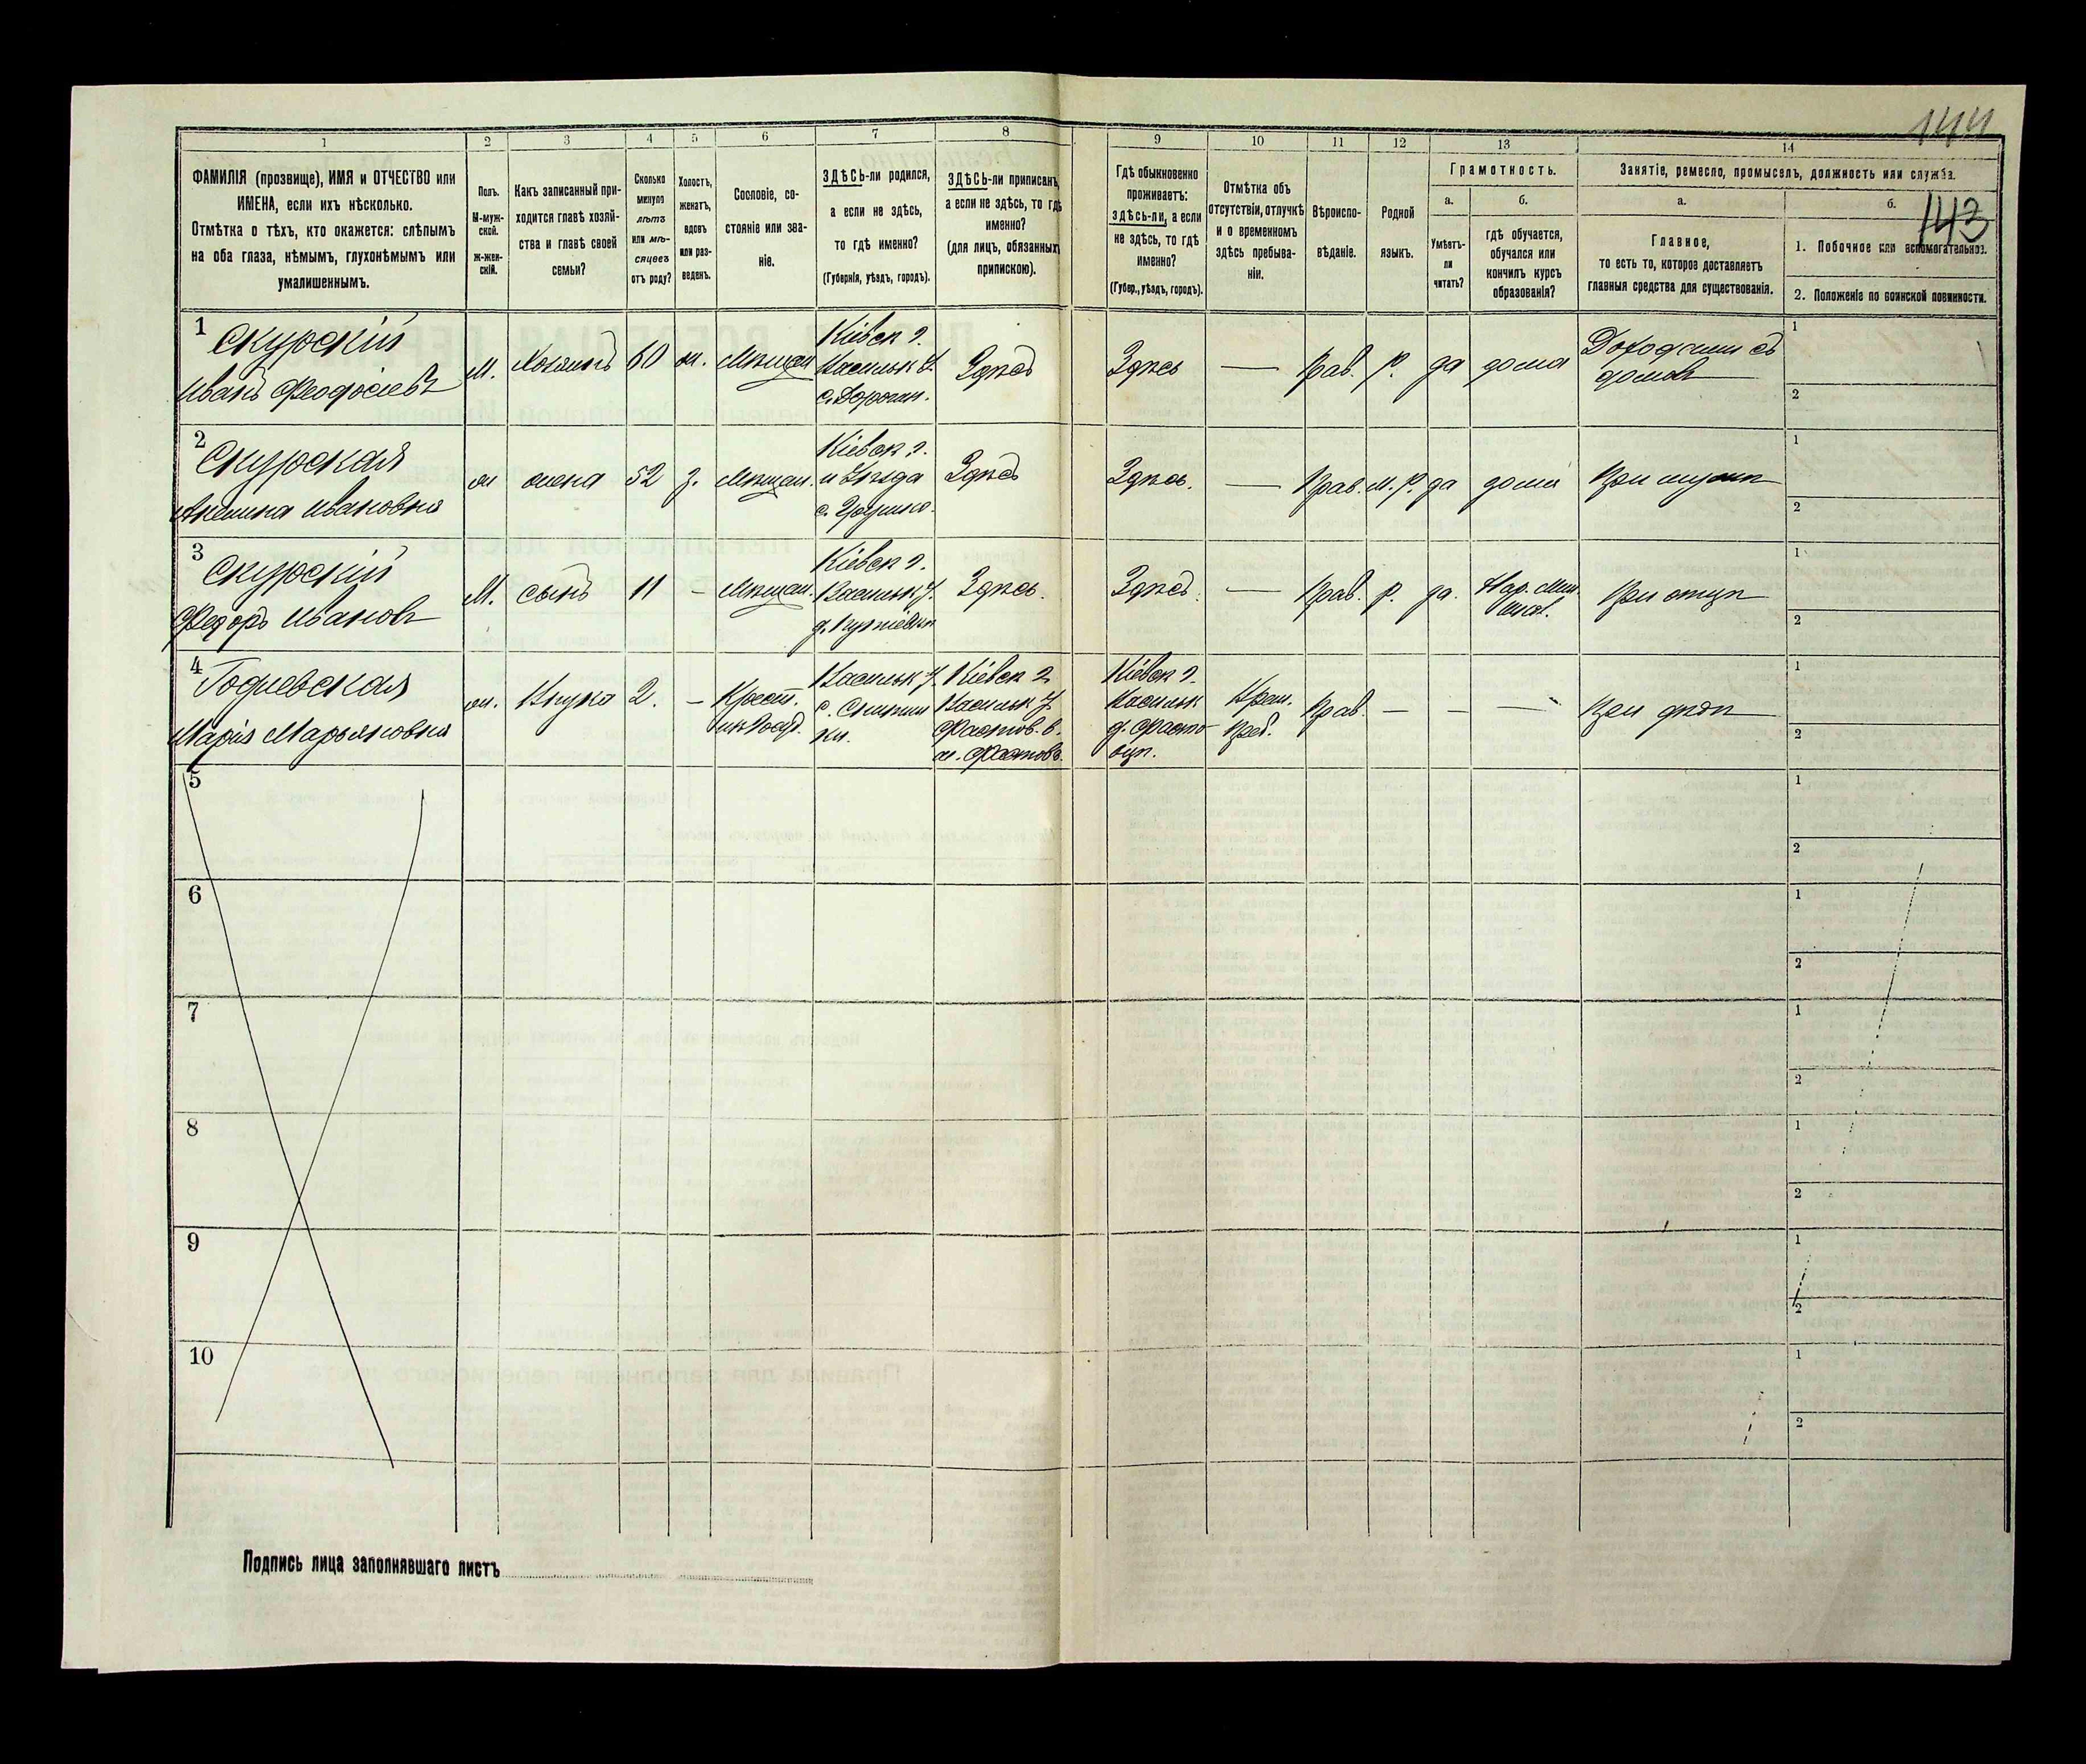 144
143
1
2
3
4
5
6
7
8
9
10
11
12
13
14
ФАМИЛІЯ (прозвище), ИМЯ и ОТЧЕСТВО или
ИМЕНА, если ихъ нѣсколько.
Отмѣтка о тѣхъ, кто окажется: слѣпымъ
на оба глаза, нѣмымъ, глухонѣмымъ или
умалишеннымъ.
Полъ.
М-муж-
ской.
Ж-жен-
скій.
Какъ записанный при-
ходится главѣ хозяй-
ства и главѣ своей
семьи?
Сколько
минуло
лѣтъ
или мѣ-
сяцевъ
отъ роду?
Холостъ,
женатъ,
вдовъ
или раз-
веденъ.
Сословіе, со-
стояніе или зва-
ніе.
ЗДѢСЬ-ли родился,
а если не здѣсь,
то гдѣ именно?
(Губернія, уѣздъ, городъ).
ЗДѢСЬ-ли приписанъ,
а если не здѣсь, то гдѣ
именно?
(для лицъ, обязанныхъ
припискою).
Гдѣ обыкновенно
проживаетъ:
здѣсь-ли, а если
не здѣсь, то гдѣ
именно?
(Губер., уѣздъ, городъ).
Отмѣтка объ
отсутствіи, отлучкѣ
и о временномъ
здѣсь пребыва-
ніи.
Вѣроиспо-
вѣданіе.
Родной
языкъ.
Грамотность.
а.
Умѣетъ-
ли
читать?
б.
гдѣ обучается,
обучался или
кончилъ курсъ
образованія?
Занятіе, ремесло, промыселъ, должность или служба.
а.
Главное,
то есть то, которое доставляетъ
главныя средства для существованія.
б.
1. Побочное или вспомогательное.
2. Положеніе по воинской повинности.
1
Скурскій
Иванъ Феодосіевъ
М.
Хозяинъ
60
ж.
Мѣщан
Кіевск г.
Васильк У.
Здѣсь
Здѣсь
—
Прав.
Р.
да
дома
Доходами съ
домов
1
2
2
Скурская
Ивановна
ж
жена
52
З.
Мѣщан.
Кіевск г.
и Уѣзда
Здѣсь
Здѣсь.
—
Прав.
М. Р.
да
дома
При мужѣ
1
2
3
Скурскій
Федоръ Ивановъ
М.
сынъ
11
-
Мѣщан.
Кіевск г.
Васильк У.
Здѣсь.
Здѣсь.
—
Прав.
р.
да.
При отцѣ
1
2
4
Марія Марьяновна
ж.
Внука
2.
-
Крест.
Васильк У.
Кіевск г.
Васильк У
Фастов. в.
м. Фастовъ.
Кіевск г.
Васильк
Прав.
—
—
—
При дѣдѣ
1
2
5
1
2
6
1
2
7
1
2
8
1
2
9
1
2
10
1
2
Подпись лица заполнявшаго листъ